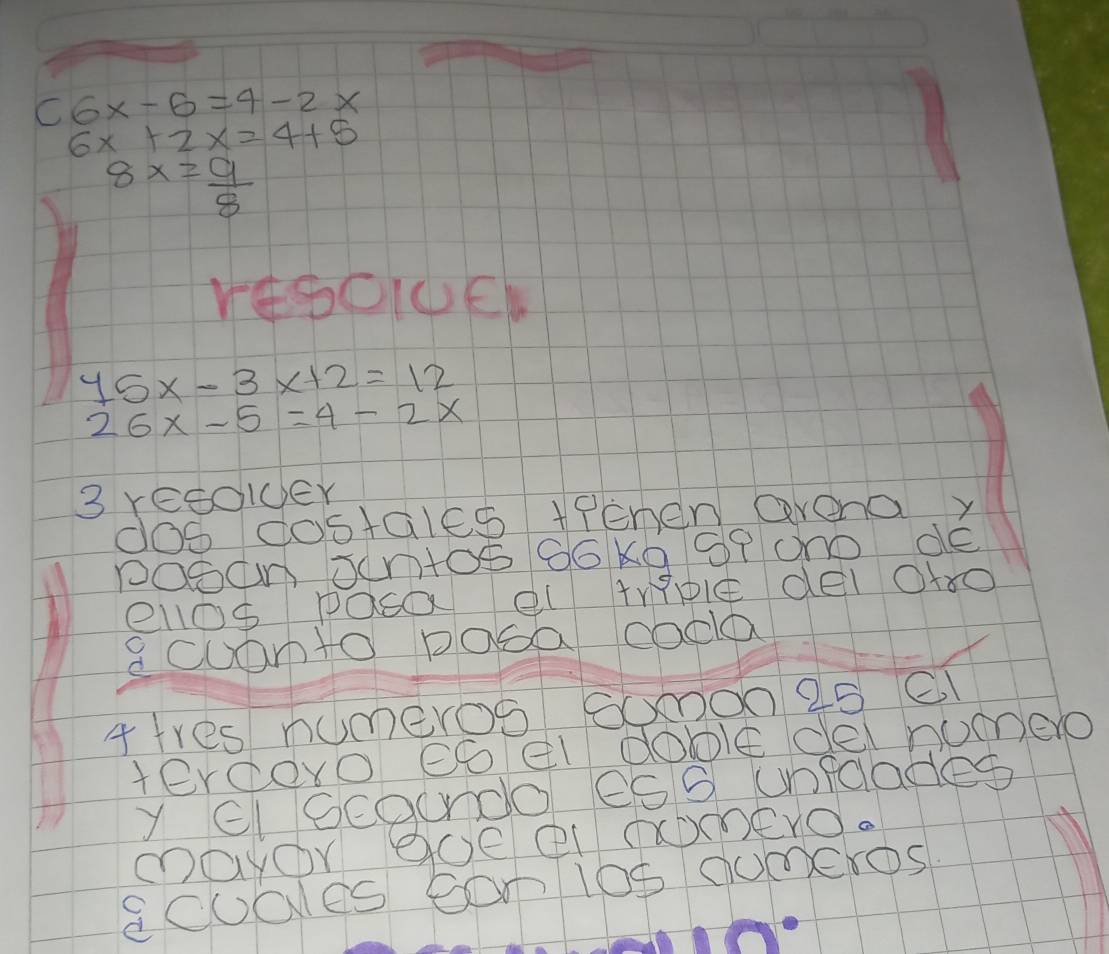 C 6x - 6 = 4 - 2x
6x + 2x = 4 + 5
8x = 9
8
resolver
1 5x - 3x + 2 = 12
2 6x - 5 = 4 - 2x
3 resolver
dos costales tienen arena y
pasan juntos 86 kg si uno de
ellos pasa el triple del otro
¿ cuanto pasa cada
4 tres numeros suman 25 el
tercero es el doble del numero
y el segundo es 5 unidades
mayor que el numero.
¿ cuales son los numeros